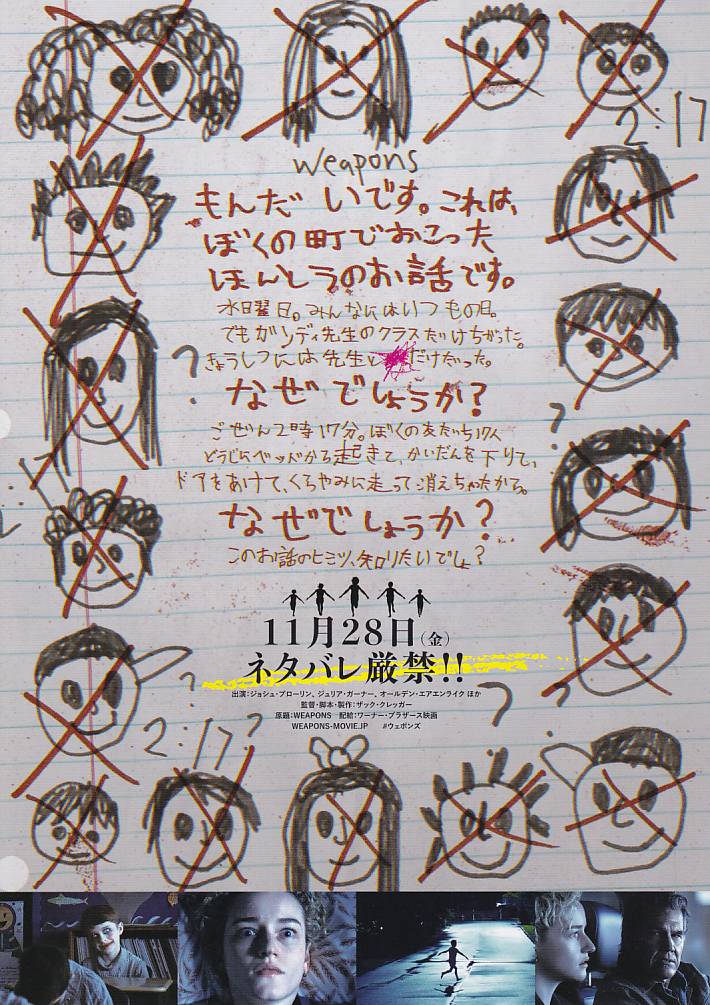 2:17
Weapons
もんだいです。これは、
ぼくの町でおこった
ほんとうのお話です。
水曜日。みんなにはいつもの日。
でもガンディ先生のクラスだけちがった。
きょうしつには先生と だけだった。
?
なぜでしょうか?
ごぜん2時17分。ぼくの友だち17人
どうじにベッドから起きて、かいだんを下りて、
ドアをあけて、くらやみに走って消えちゃたから。
?
なぜでしょうか?
このお話のヒミツ、知りたいでしょ?
11月28日(金)
ネタバレ厳禁!!
出演:ジョシュ・ブローリン、ジュリア・ガーナー、オールデン・エアエンライク ほか
監督・脚本・製作:ザック・クレッガー
原題:WEAPONS 配給:ワーナー・ブラザース映画
WEAPONS-MOVIE.JP #ウェポンズ
?
?
?
2:17?